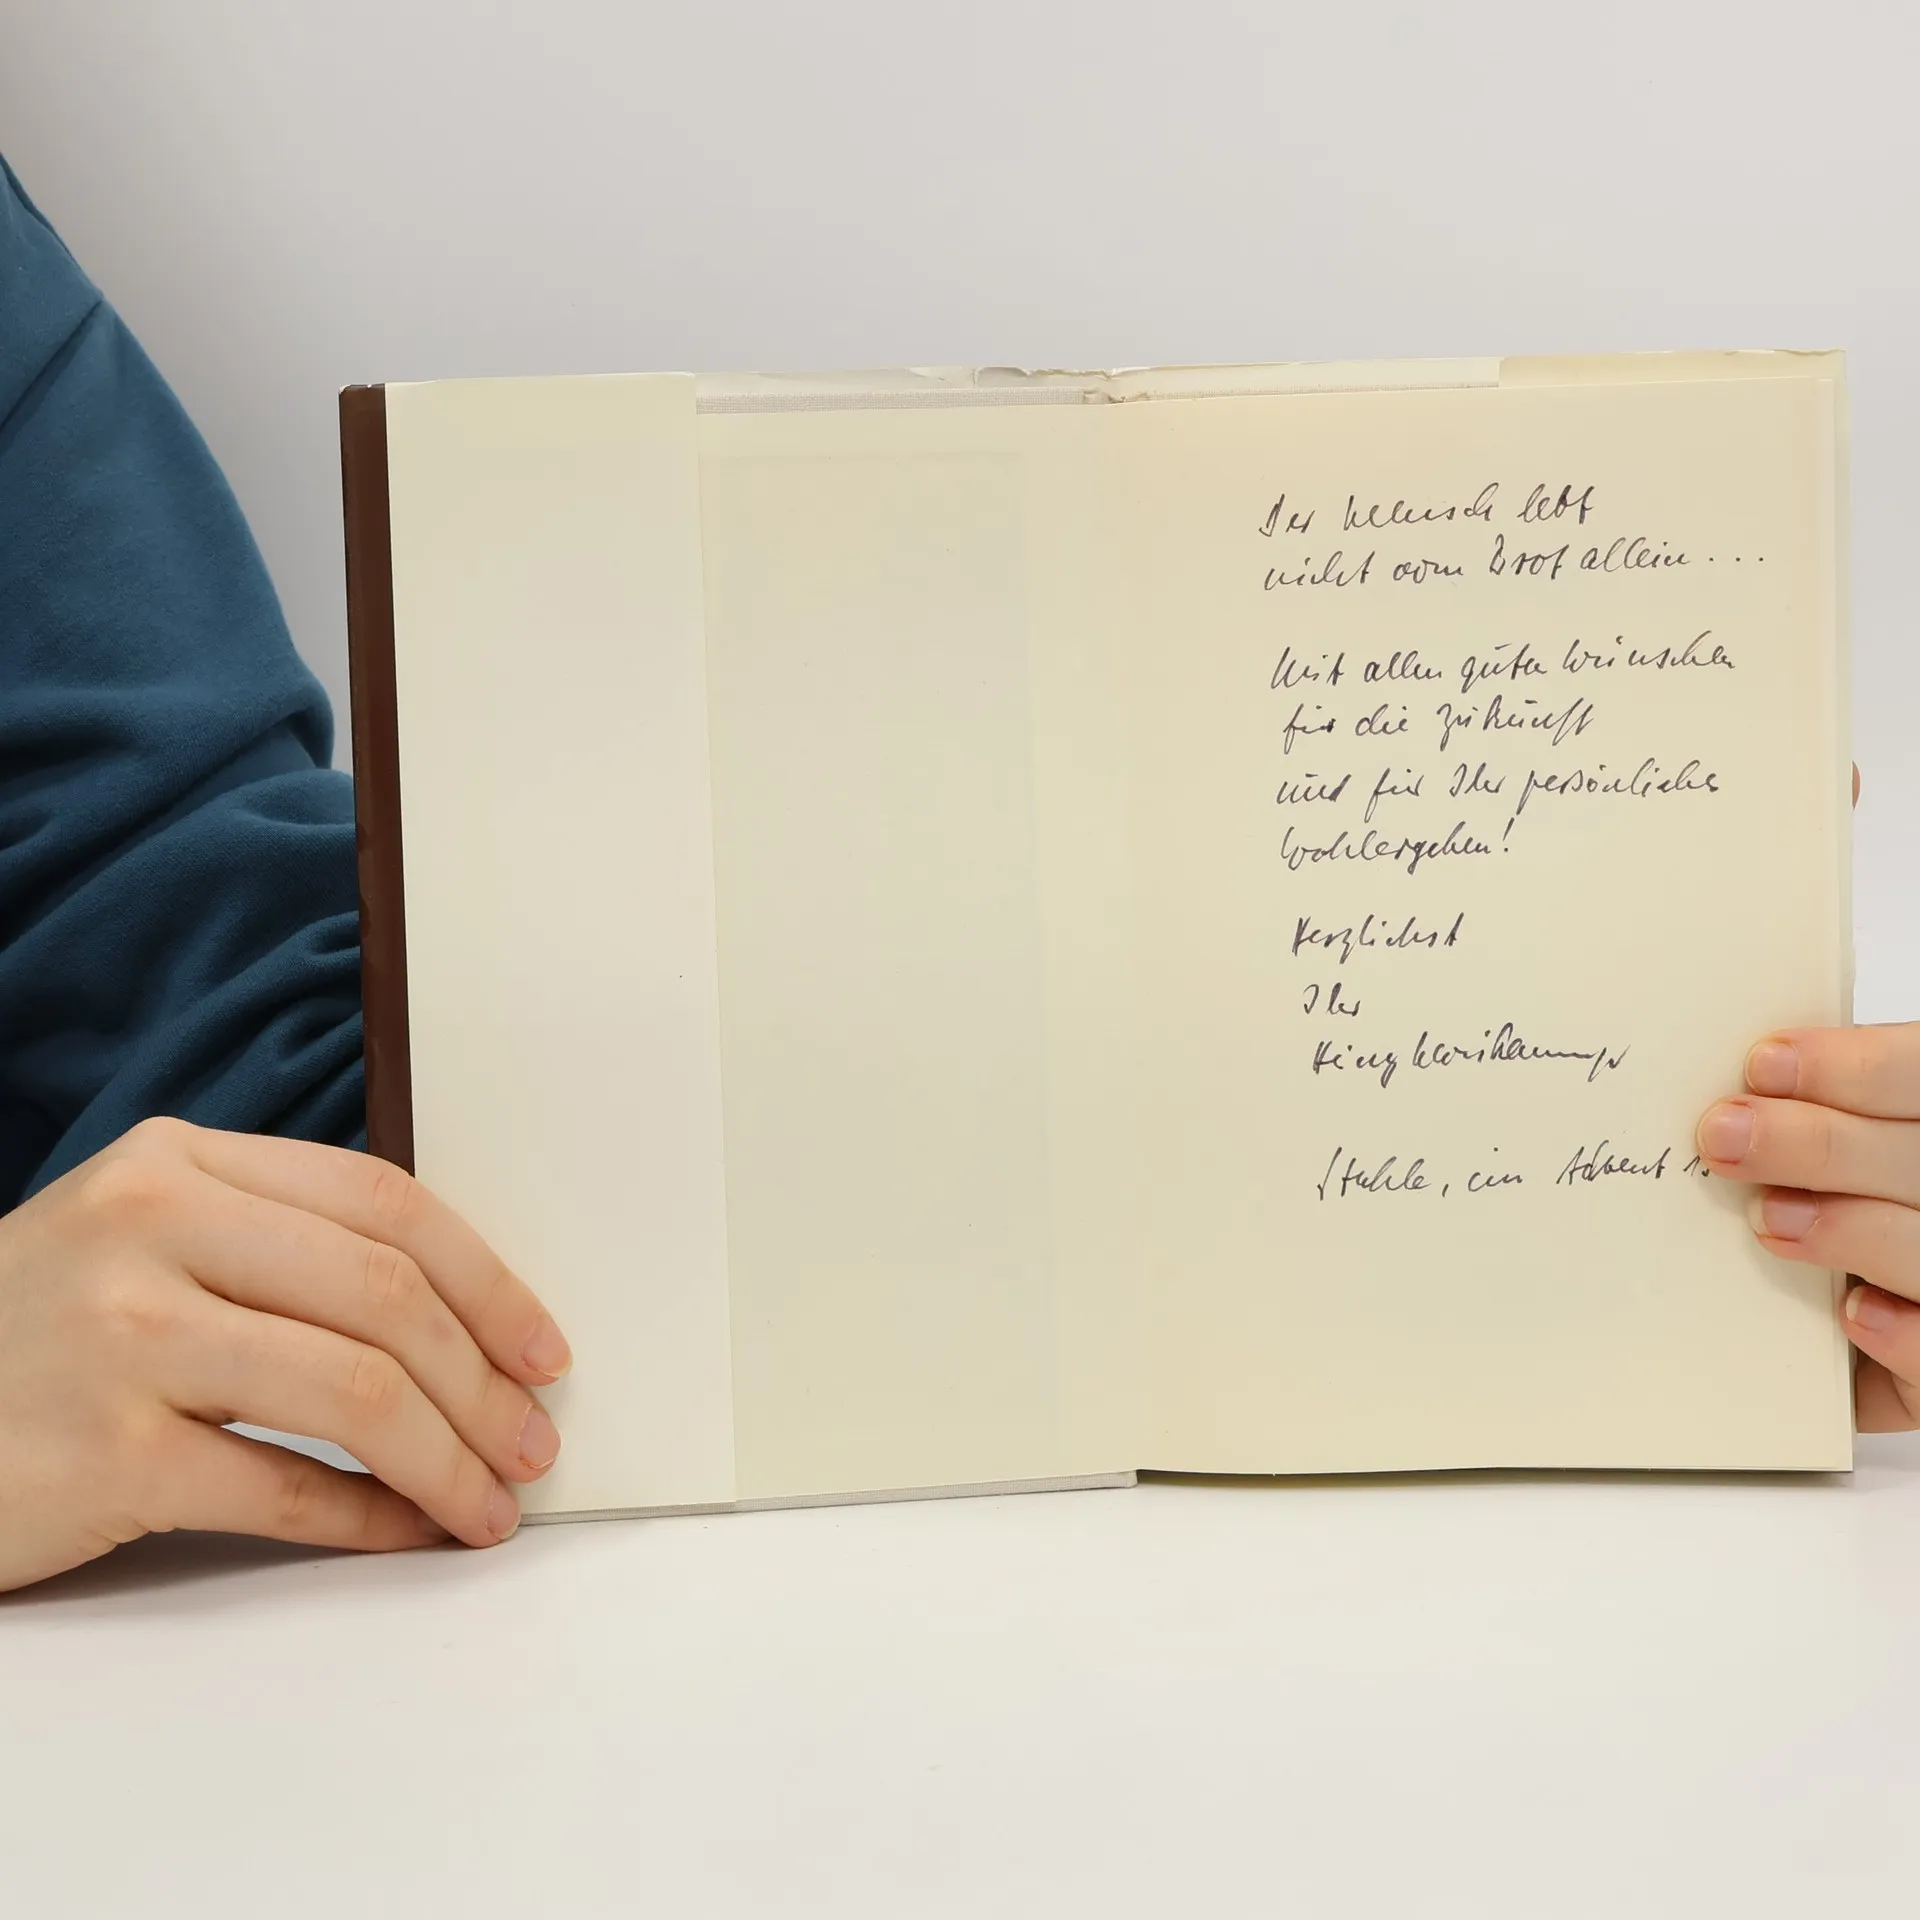 Der Mensch lebt
nicht vom Brot allein...
Mit allen guten Wünschen
für die Zukunft
und für Ihr persönliches
Wohlergehen!
Herzlichst
Ihr
Heinz
im Advent